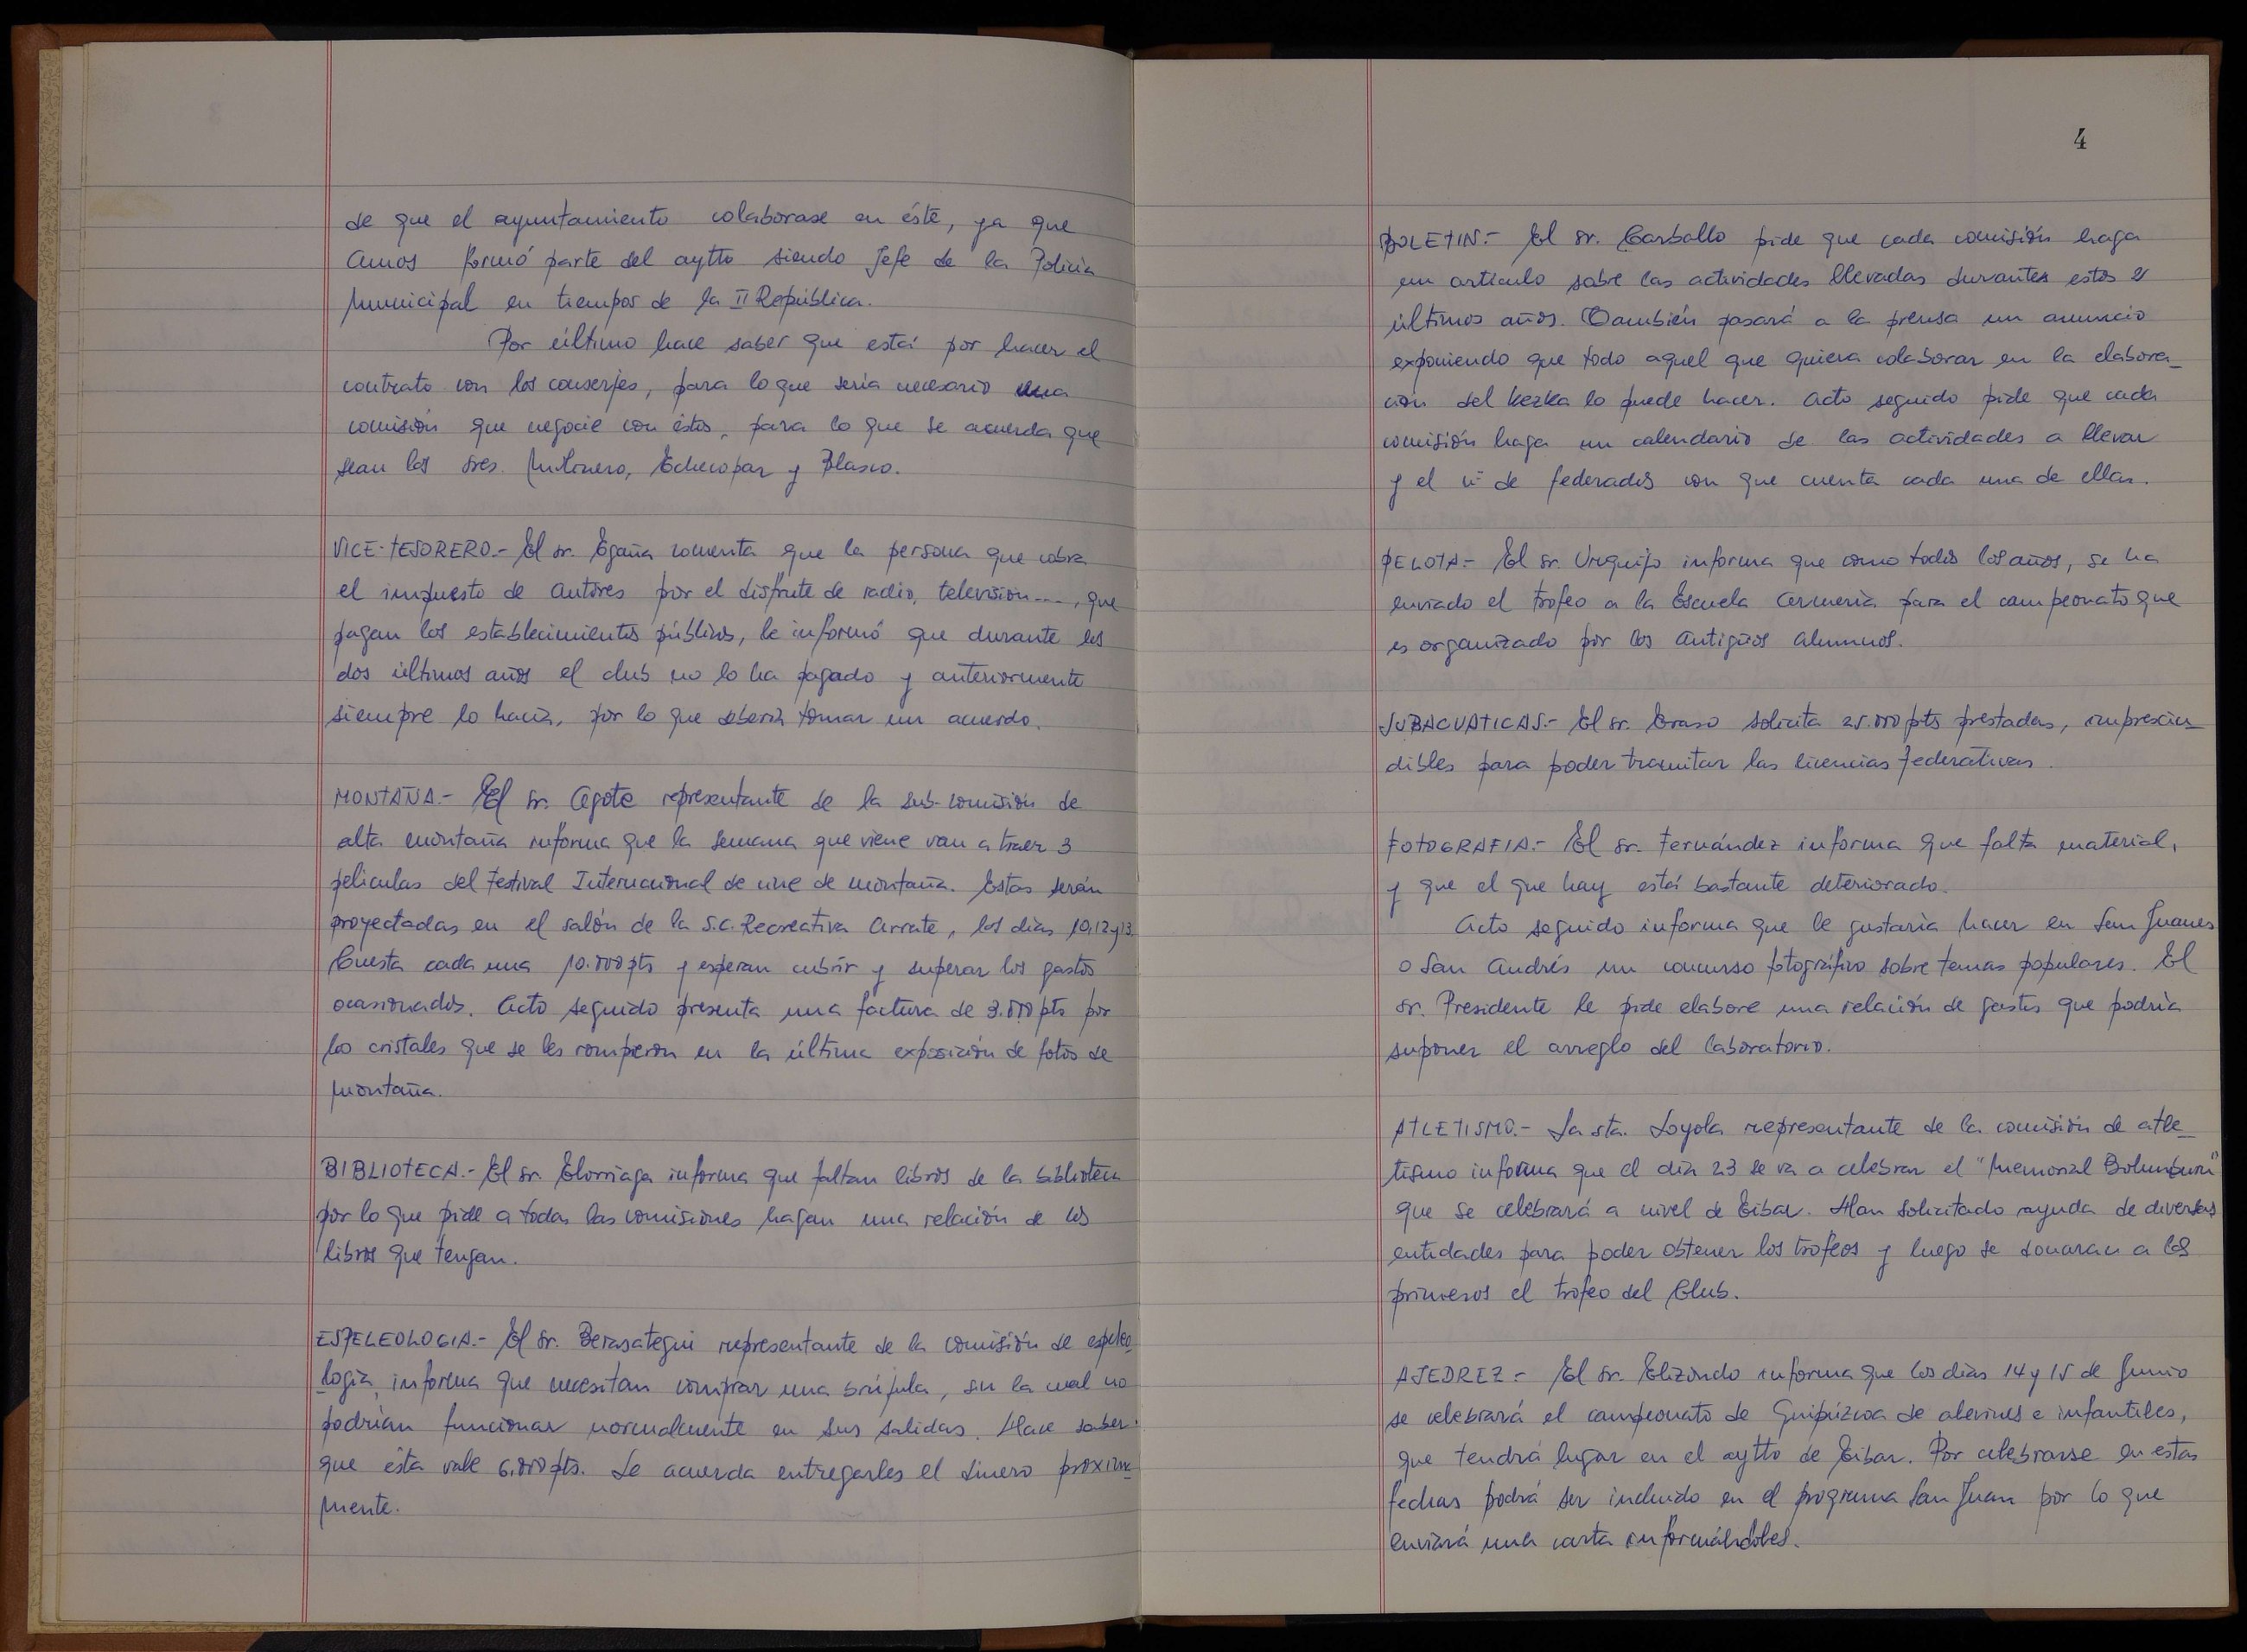 de que el ayuntamiento colaborase en éste, ya que
Amos formó parte del aytto siendo Jefe de la Policia
Municipal en tiempos de la II República.
Por último hace saber que está por hacer el
contrato con los conserjes, para lo que seria necesario una
comisión que negocie con éstos, para lo que se acuerda que
sean los sres. Molinero, Echecopar y Blasco.
VICE-TESORERO.- El sr. Egaña comenta que la persona que cobra
el impuesto de autores por el disfrute de radio, televisión..., que
pagan los establecimientos públicos, le informó que durante los
dos últimos años el club no lo ha pagado y anteriormente
siempre lo hacía, por lo que deberia tomar un acuerdo.
MONTAÑA.- El sr. Agote representante de la sub-comisión de
alta montaña informa que la semana que viene van a traer 3
peliculas del Festival Internacional de cine de montaña. Estas serán
proyectadas en el salón de la S.C. Recreativa Arrate, los dias 10,12 y 13.
Cuesta cada una 10.000 pts y esperan cubrir y superar los gastos
ocasionados. Acto seguido presenta una factura de 3.000 pts por
los cristales que se les romperon en la última exposición de fotos de
montaña.
BIBLIOTECA.- El sr. Elorriaga informa que faltan libros de la biblioteca
por lo que pide a todas las comisiones hagan una relación de los
libros que tengan.
ESPELEOLOGIA.- El sr. Berasategui representante de la comisión de espeleo
logia, informa que necesitan comprar una brújula, sin la cual no
podrian funcionar normalmente en sus salidas. Hace saber
que ésta vale 6.000 pts. Se acuerda entregarles el dinero proxima
mente.
4
BOLETIN.- El sr. Carballo pide que cada comisión haga
un articulo sobre las actividades llevadas durantes estos 2
últimos años. También pasará a la prensa un anuncio
exponiendo que todo aquel que quiera colaborar en la elabora_
ción del Kezka lo puede hacer. Acto seguido pide que cada
comisión haga un calendario de las actividades a llevar
y el nº de federados con que cuenta cada una de ellas.
PELOTA.- El sr. Urquijo informa que como todos los años, se ha
enviado el trofeo a la Escuela Armeria para el campeonato que
es organizado por los Antigüos Alumnos.
SUBACUATICAS.- El sr. Eraso solicita 25.000 pts prestadas, imprescin_
dibles para poder tramitar las licencias Federativas.
FOTOGRAFIA.- El sr. Fernández informa que falta material,
y que el que hay está bastante deteriorado.
Acto seguido informa que le gustaria hacer en San Juanes
o San Andrés un concurso fotográfico sobre temas populares. El
sr. Presidente le pide elabore una relación de gastos que podria
suponer el arreglo del laboratorio.
ATLETISMO.- La sta. Loyola representante de la comisión de atle_
tismo informa que el dia 23 se va a celebrar el "Memorial Bolumburu"
que se celebrará a nivel de Eibar. Han solicitado ayuda de diversas
entidades para poder obtener los trofeos y luego se donaran a los
primeros el trofeo del Club.
AJEDREZ.- El sr. Elizondo informa que los dias 14 y 15 de Junio
se celebrará el campeonato de Guipúzcoa de alevines e infantiles,
que tendrá lugar en el aytto de Eibar. Por celebrarse en estas
fechas podrá ser incluido en el programa San Juan por lo que
enviará una carta informándoles.